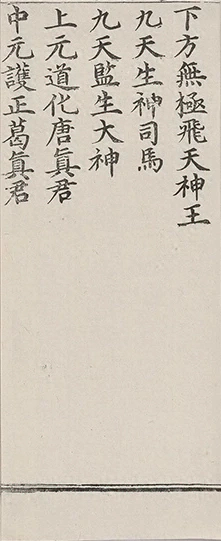 下方無極飛天神王
九天生神司馬
九天監生大神
上元道化唐眞君
中元護正葛眞君